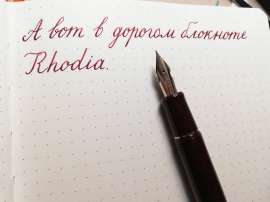 А вот в дорогом блокноте
Rhodia.